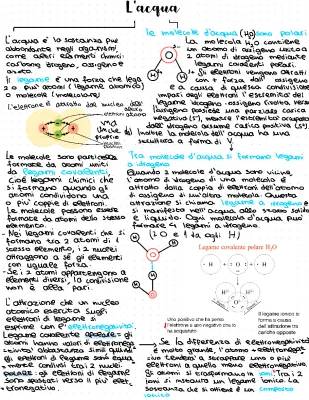 L'acqua
L'acqua è la sostanza più
abbondante negli organismi,
come altri elementi chimici:
carbonio, idrogeno, ossigeno e
azoto.
Il legame è una forza che lega
2 o più atomi (legame atomico)
o molecole (molecolare)
L'elettrone è attratto dal nucleo dell'
altro
elettroni
nucleo
Le molecole sono particelle
formate da atomi uniti
da legami covalenti,
cioè legami chimici che
si formano quando gli
atomi condividono una
o più coppie di elettroni.
Le molecole possono essere
formate da atomi dello stesso
elemento.
- Nei legami covalenti che si
formano tra 2 atomi di 1
stesso elemento, i 2 nuclei
attraggono a sé gli elettroni
con uguale forza.
- Se i 2 atomi appartengono a
elementi diversi, la condivisione
non è alla pari.
L'attrazione che un nucleo
atomico esercita sugli
elettroni di legame si
esprime con l'elettronegatività.
Legame covalente apolare: gli
atomi hanno valori di elettronega
tività abbastanza simili quindi
gli elettroni di legame sono equa
mente condivisi tra i 2 nuclei.
polare: gli elettroni di legame
sono spostati verso il più elet
tronegativo.
le molecole d'acqua (H₂O) sono polari
La molecola H₂O contiene
un atomo di ossigeno unito a
2 atomi di idrogeno mediante
legami covalenti polari.
Gli elettroni vengono attratti
con + forza dall'ossigeno
e a causa di questa condivisione
impari degli elettroni l'estremità del
legame idrogeno-ossigeno rivolta verso
l'ossigeno possiede una parziale carica
negativa (δ⁻), mentre l'estremità occupata
dall'idrogeno assume carica positiva (δ⁺).
Inoltre la molecola dell'acqua ha una
struttura a forma di
Tra molecole d'acqua si formano legami
a idrogeno
Quando 2 molecole d'acqua sono vicine,
1 atomo di idrogeno di una molecola è
attratto dalla coppia di elettroni dell'atomo
di ossigeno di un'altra molecola. Questa
attrazione si chiama legame a idrogeno e
si manifesta nell'acqua allo stato solido
e liquido. Ogni molecola d'acqua può
formare 4 legami a idrogeno.
Legame covalente polare H₂O
Uno positivo che ha perso
l'elettrone e uno negativo che lo
ha acquistato
Il legame ionico si
forma a causa
dell'attrazione tra
cariche opposte
Se la differenza di elettronegatività
è molto grande, l'atomo + elettronega
tivo tenderà a strappare uno o più
elettroni a quello meno elettronegativo.
Gli atomi si trasformano in ioni. Tra i 2
ioni si instaura un legame ionico. La
sostanza che si ottiene è un composto
ionico